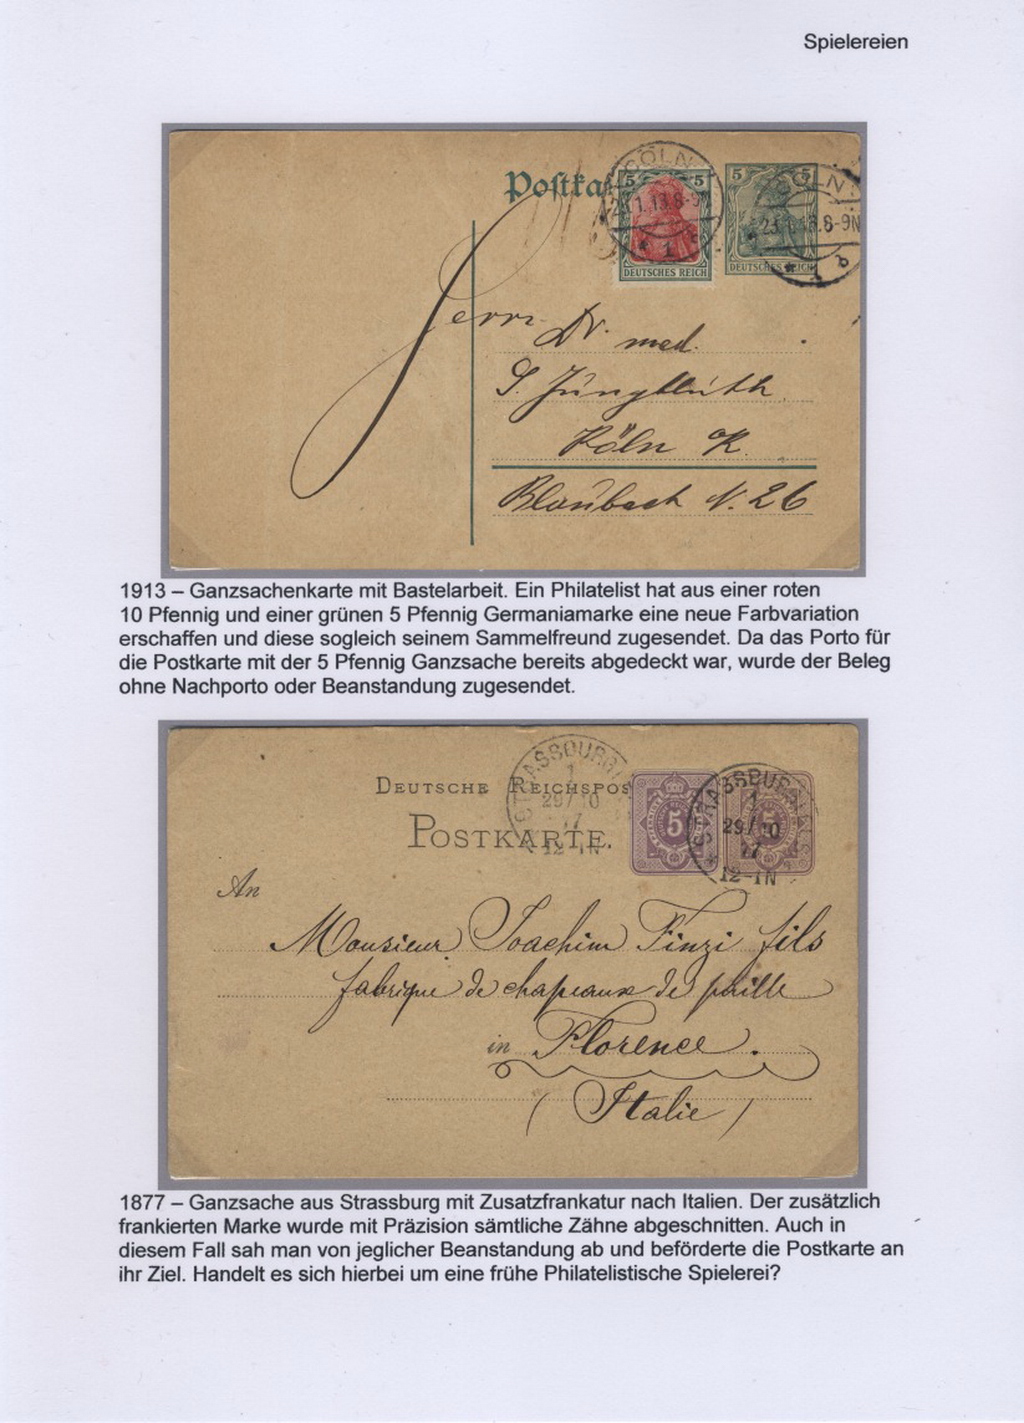 Spielereien
Postka
5 5
DEUTSCHES REICH
5 5
DEUTSCHES REICH
CÖLN
23.1.13.8-9N
* 1
CÖLN
23.1.13.8-9N
Herrn Dr. med.
S. Jungbluth
Köln R.
Blaubach N. 26
1913 – Ganzsachenkarte mit Bastelarbeit. Ein Philatelist hat aus einer roten
10 Pfennig und einer grünen 5 Pfennig Germaniamarke eine neue Farbvariation
erschaffen und diese sogleich seinem Sammelfreund zugesendet. Da das Porto für
die Postkarte mit der 5 Pfennig Ganzsache bereits abgedeckt war, wurde der Beleg
ohne Nachporto oder Beanstandung zugesendet.
DEUTSCHE REICHSPOS
POSTKARTE.
5
5
STRASSBURG
1
29/10
77
12-1N
STRASSBURG
1
29/10
77
12-1N
An
Monsieur Joachim Finzi fils
fabrique de chapeaux de paille
in Florence.
(Italie)
1877 – Ganzsache aus Strassburg mit Zusatzfrankatur nach Italien. Der zusätzlich
frankierten Marke wurde mit Präzision sämtliche Zähne abgeschnitten. Auch in
diesem Fall sah man von jeglicher Beanstandung ab und beförderte die Postkarte an
ihr Ziel. Handelt es sich hierbei um eine frühe Philatelistische Spielerei?